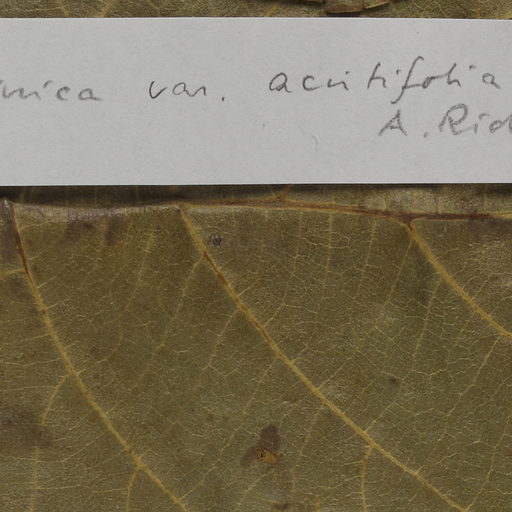 var. acutifolia
A. Rid